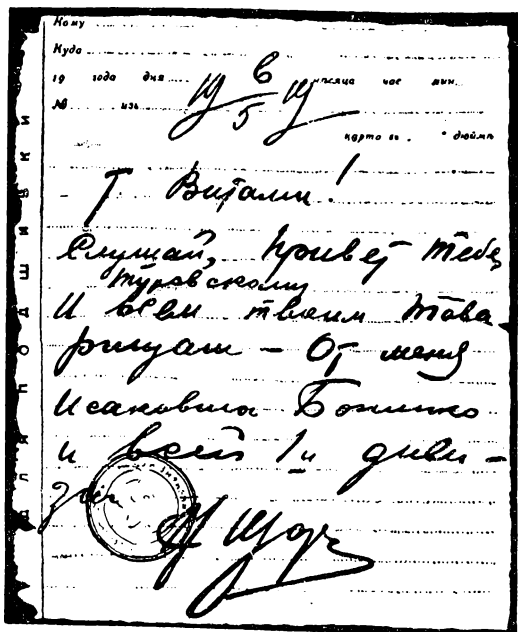 Кому
Куда
19 года дня месяца час мин.
№ изъ
6
5
карта въ дюймѣ
Т Витали!
Слушай, привет тебе,
Туровскому
и всем твоим това-
рищам – От меня
Исаковича Боженко
и всей 1й диви-
зии
Щорс
для подшивки